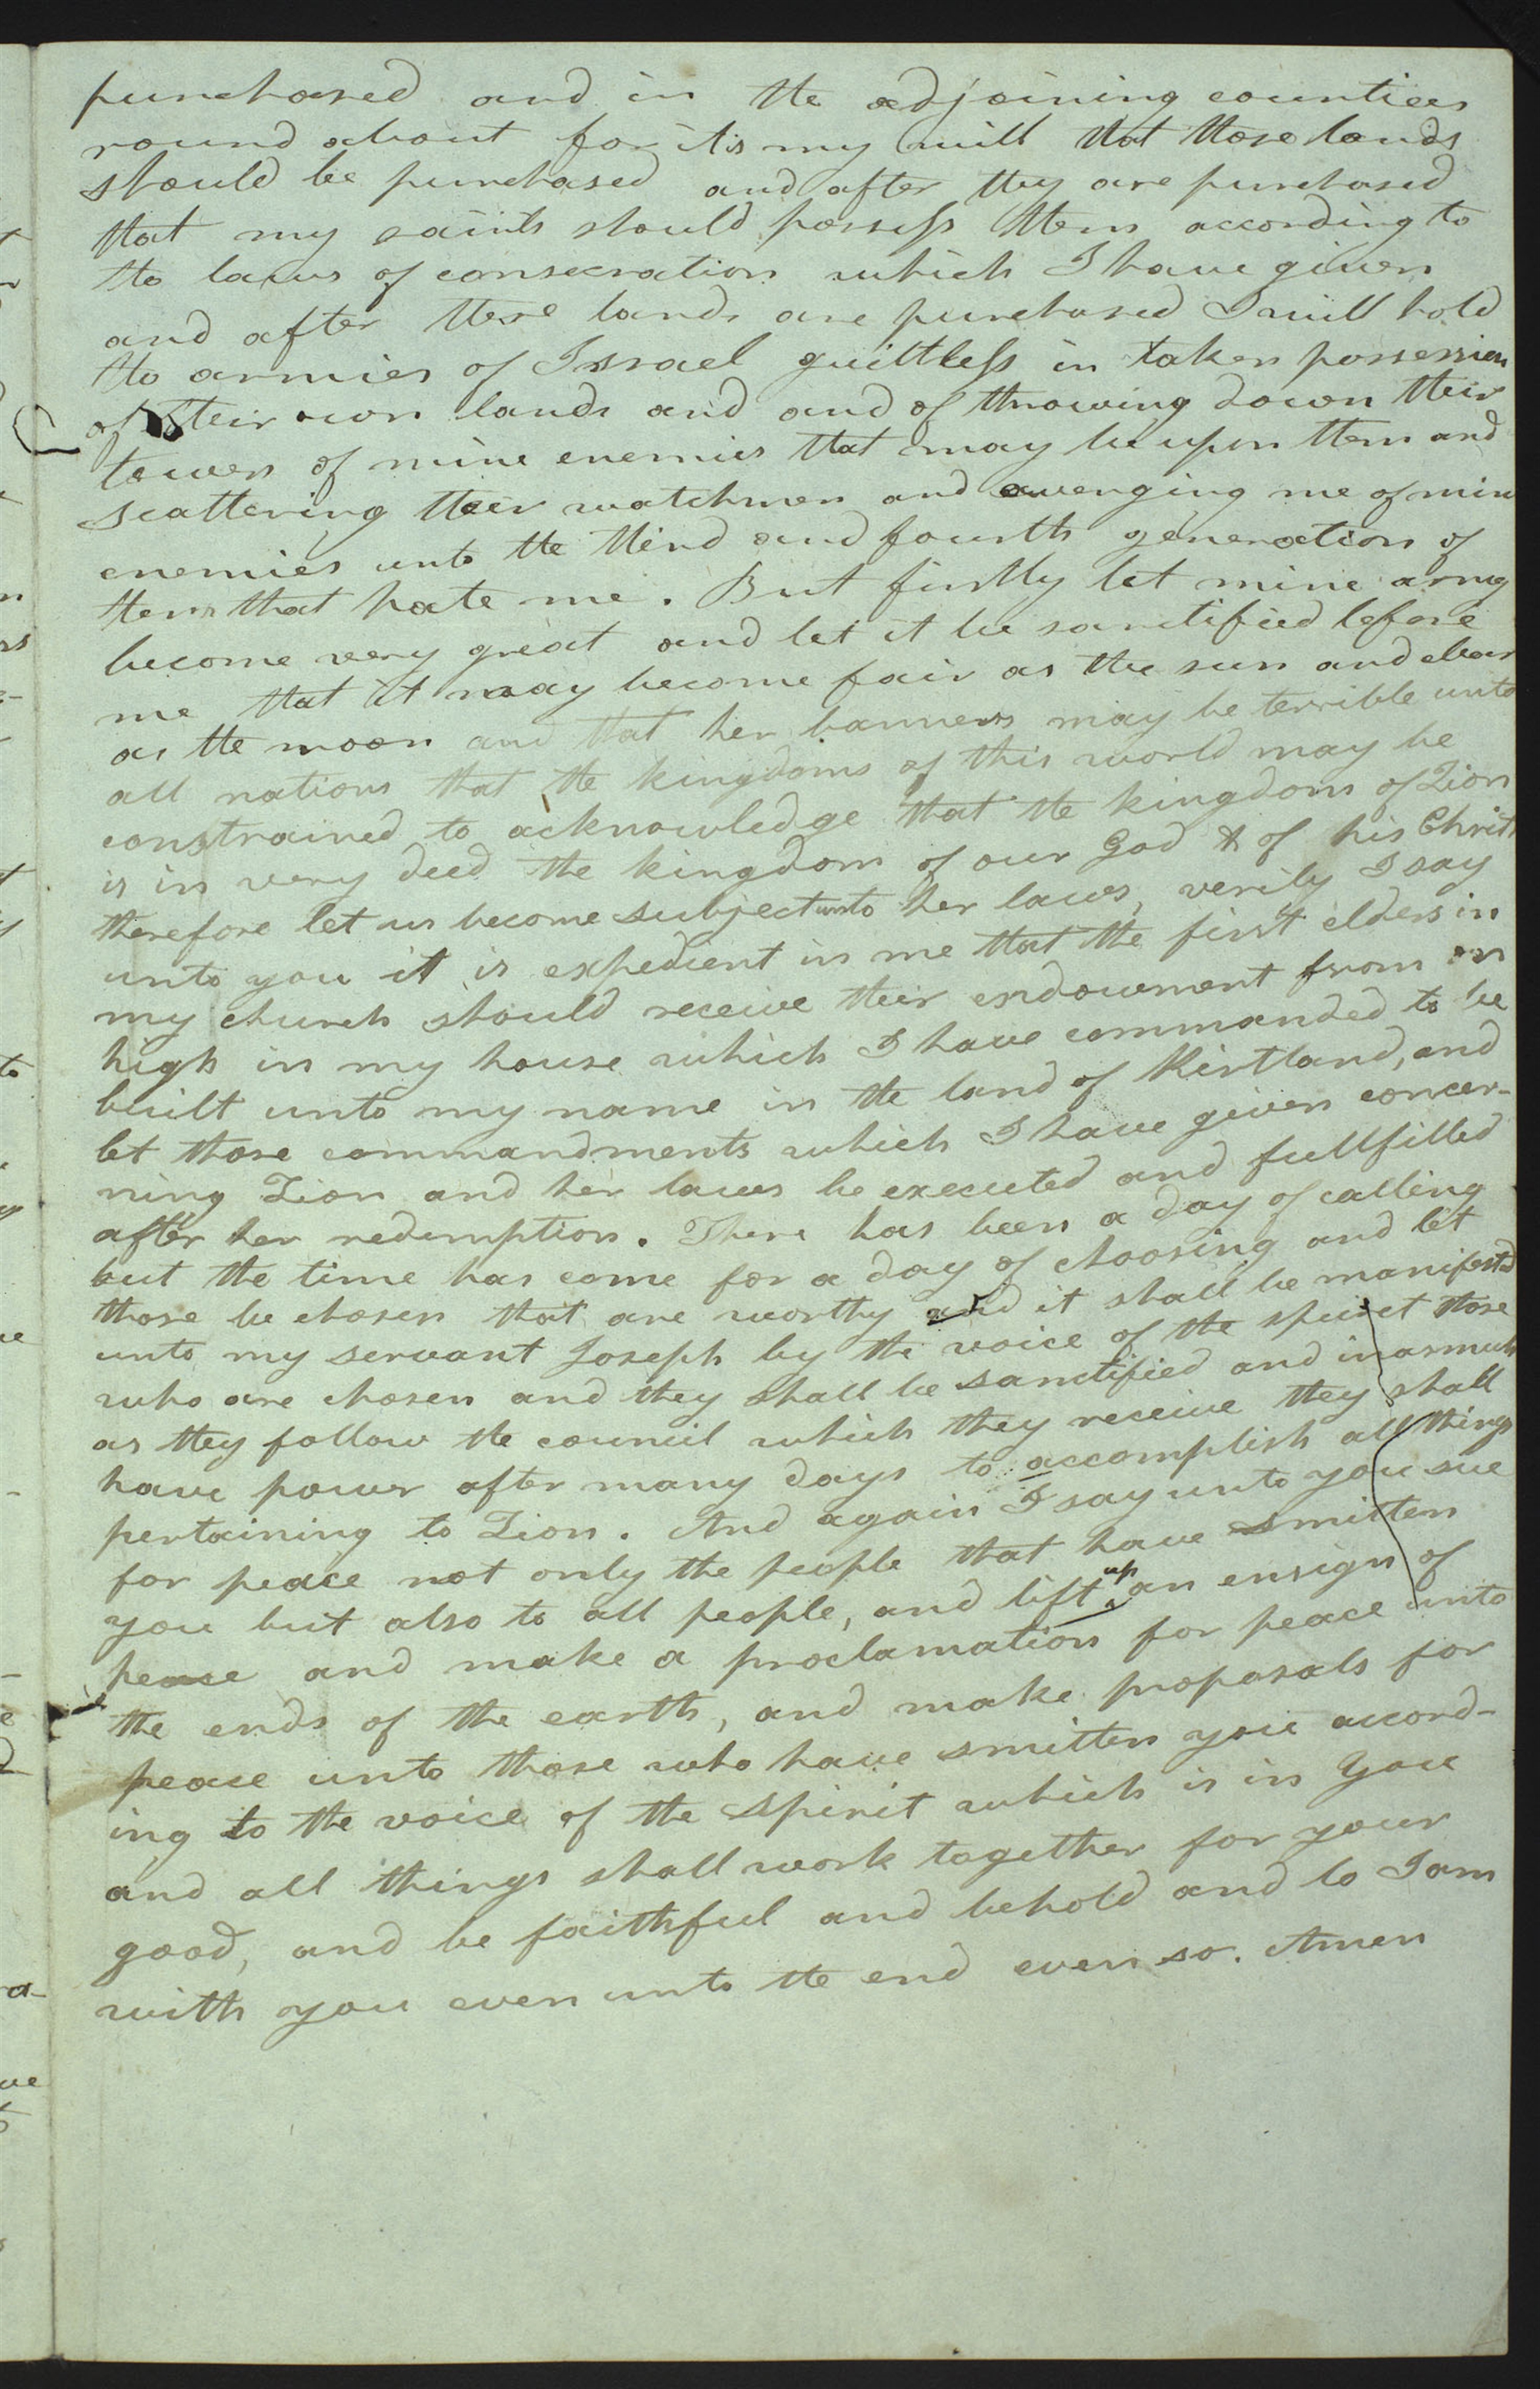 purchased and in the adjoining counties
round about for it is my will that those lands
should be purchased and after they are purchased
that my saints should possess them according to
the laws of consecration which I have given
and after these lands are purchased I will hold
the armies of Israel guiltless in taken possession
of their own lands and and of throwing down their
towers of mine enemies that may be upon them and
scattering their watchmen and avenging me of mine
enemies unto the third and fourth generation of
them that hate me. But firstly let mine army
become very great and let it be sanctified before
me that it may become fair as the sun and clear
as the moon and that her banners may be terrible unto
all nations that the kingdoms of this world may be
constrained to acknowledge that the kingdom of Zion
is in very deed the kingdom of our God & of his Christ
therefore let us become subject unto her laws, verily I say
unto you it is expedient in me that the first elders in
my church should receive their endowment from on
high in my house which I have commanded to be
built unto my name in the land of Kirtland, and
let those commandments which I have given concer-
ning Zion and her laws be executed and fullfilled
after her redemption. There has been a day of calling
but the time has come for a day of choosing and let
those be chosen that are worthy and it shall be manifested
unto my servant Joseph by the voice of the spirit those
who are chosen and they shall be sanctified and inasmuch
as they follow the council which they receive they shall
have power after many days to accomplish all things
pertaining to Zion. And again I say unto you sue
for peace not only the people that have smitten
you but also to all people, and lift up an ensign of
peace and make a proclamation for peace unto
the ends of the earth, and make proposals for
peace unto those who have smitten you accord-
ing to the voice of the Spirit which is in you
and all things shall work together for your
good, and be faithful and behold and lo I am
with you even unto the end even so. Amen